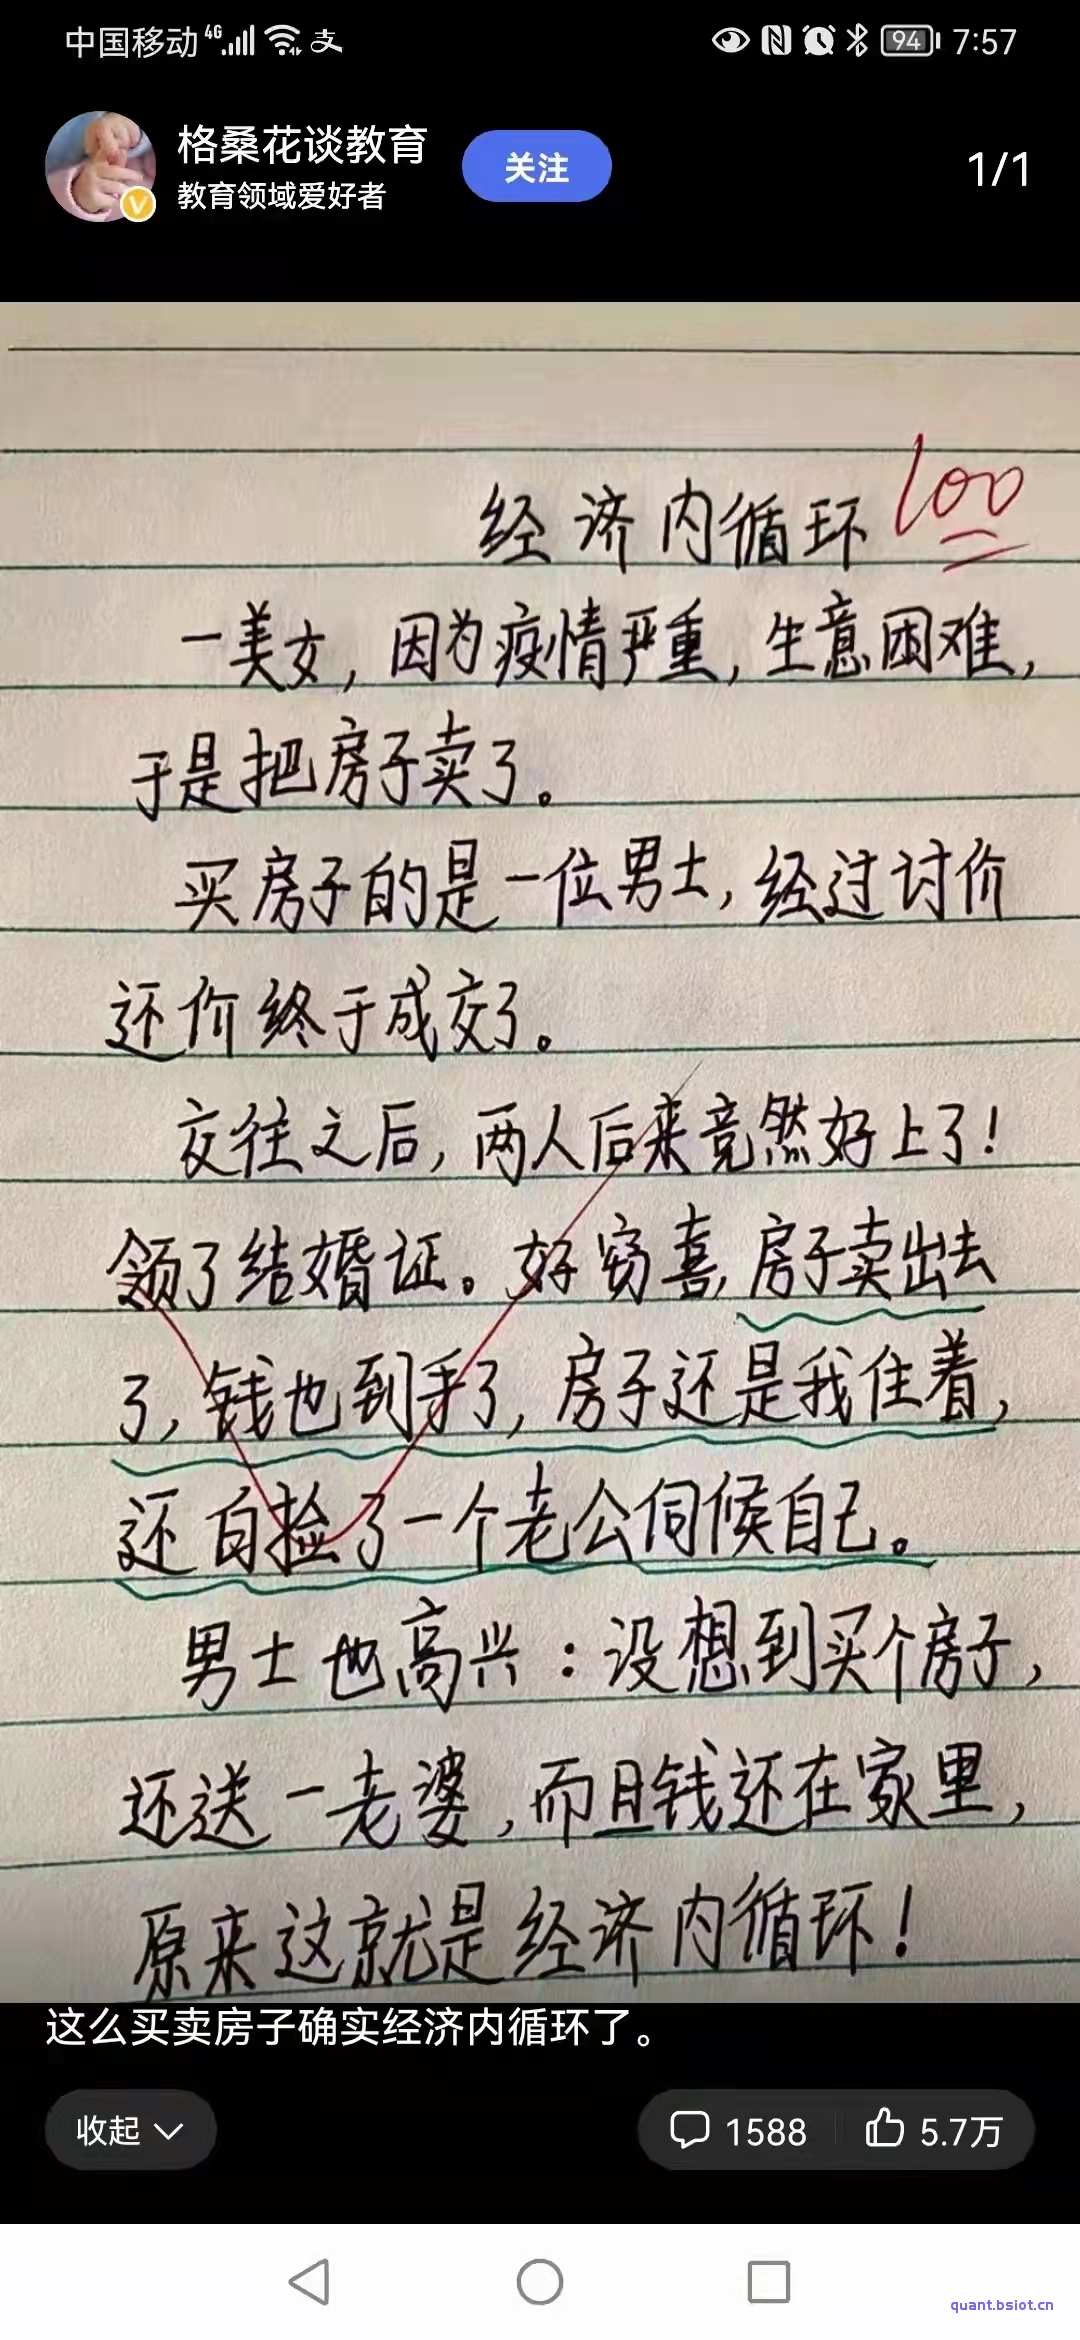 中国移动 4G 支 94 7:57
格桑花谈教育 关注 1/1
教育领域爱好者
经济内循环 100
一美女，因为疫情严重，生意困难，
于是把房子卖了。
买房子的是一位男士，经过讨价
还价终于成交了。
交往之后，两人后来竟然好上了！
领了结婚证。好窃喜，房子卖出去
了，钱也到手了，房子还是我住着，
还白捡了一个老公伺候自己。
男士也高兴：没想到买个房子，
还送一老婆，而且钱还在家里，
原来这就是经济内循环！
这么买卖房子确实经济内循环了。
收起 1588 5.7万
quant.bsiot.cn